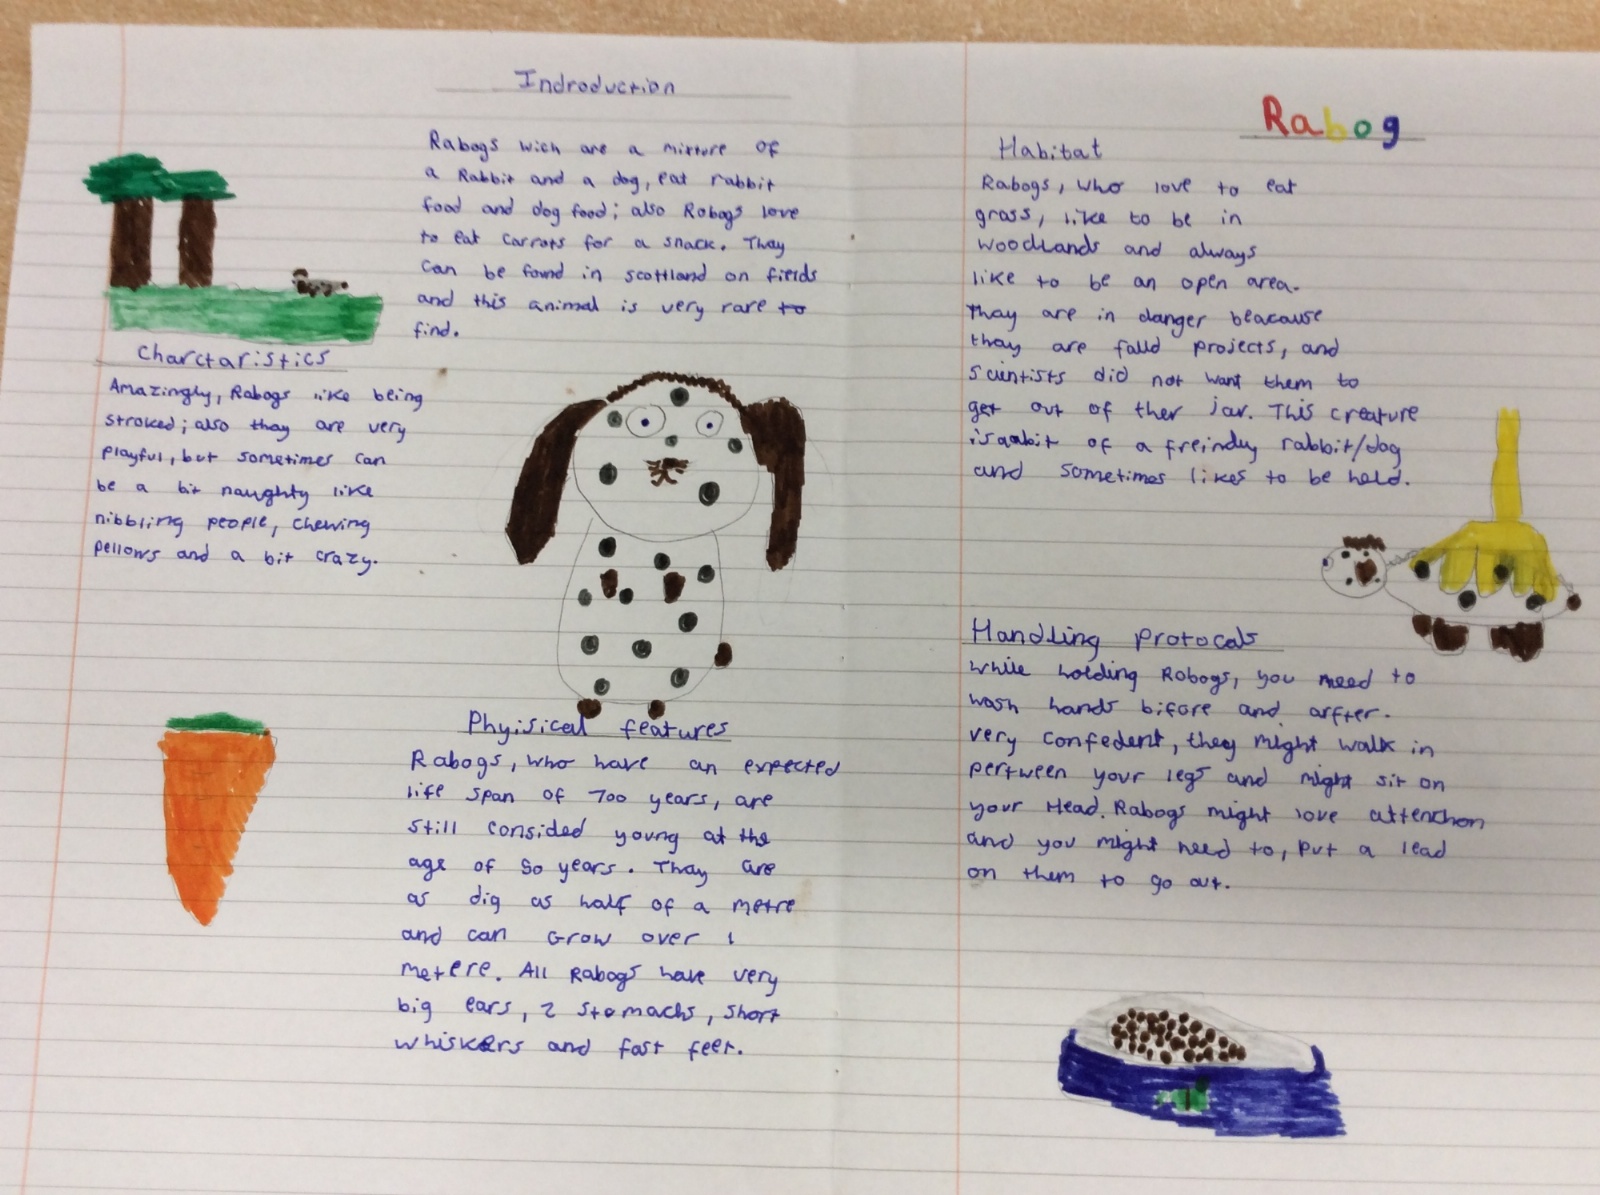 Indroduction
Rabogs wich are a mixture of
a Rabbit and a dog, eat rabbit
food and dog food; also Robogs love
to eat carrots for a snack. Thay
can be found in scottland on fields
and this animal is very rare to
find.
Charctaristics
Amazingly, Rabogs like being
stroked; also thay are very
playful, but sometimes can
be a bit naughty like
nibbling people, chewing
pellows and a bit crazy.
Phyisical features
Rabogs, who have an expected
life span of 700 years, are
still consided young at the
age of 50 years. Thay are
as dig as half of a metre
and can Grow over 1
metere. All Rabogs have very
big ears, 2 stomachs, short
whiskers and fast feet.
Rabog
Habitat
Rabogs, who love to eat
grass, like to be in
woodlands and always
like to be an open area.
thay are in danger beacause
thay are faild projects, and
scientists did not want them to
get out of ther jar. This creature
is a bit of a freindly rabbit/dog
and sometimes likes to be held.
Handling protocals
While holding Robogs, you need to
wash hands bifore and arfter.
very confedent, they might walk in
pertween your legs and might sit on
your Head. Rabogs might love attenchon
and you might need to, put a lead
on them to go out.